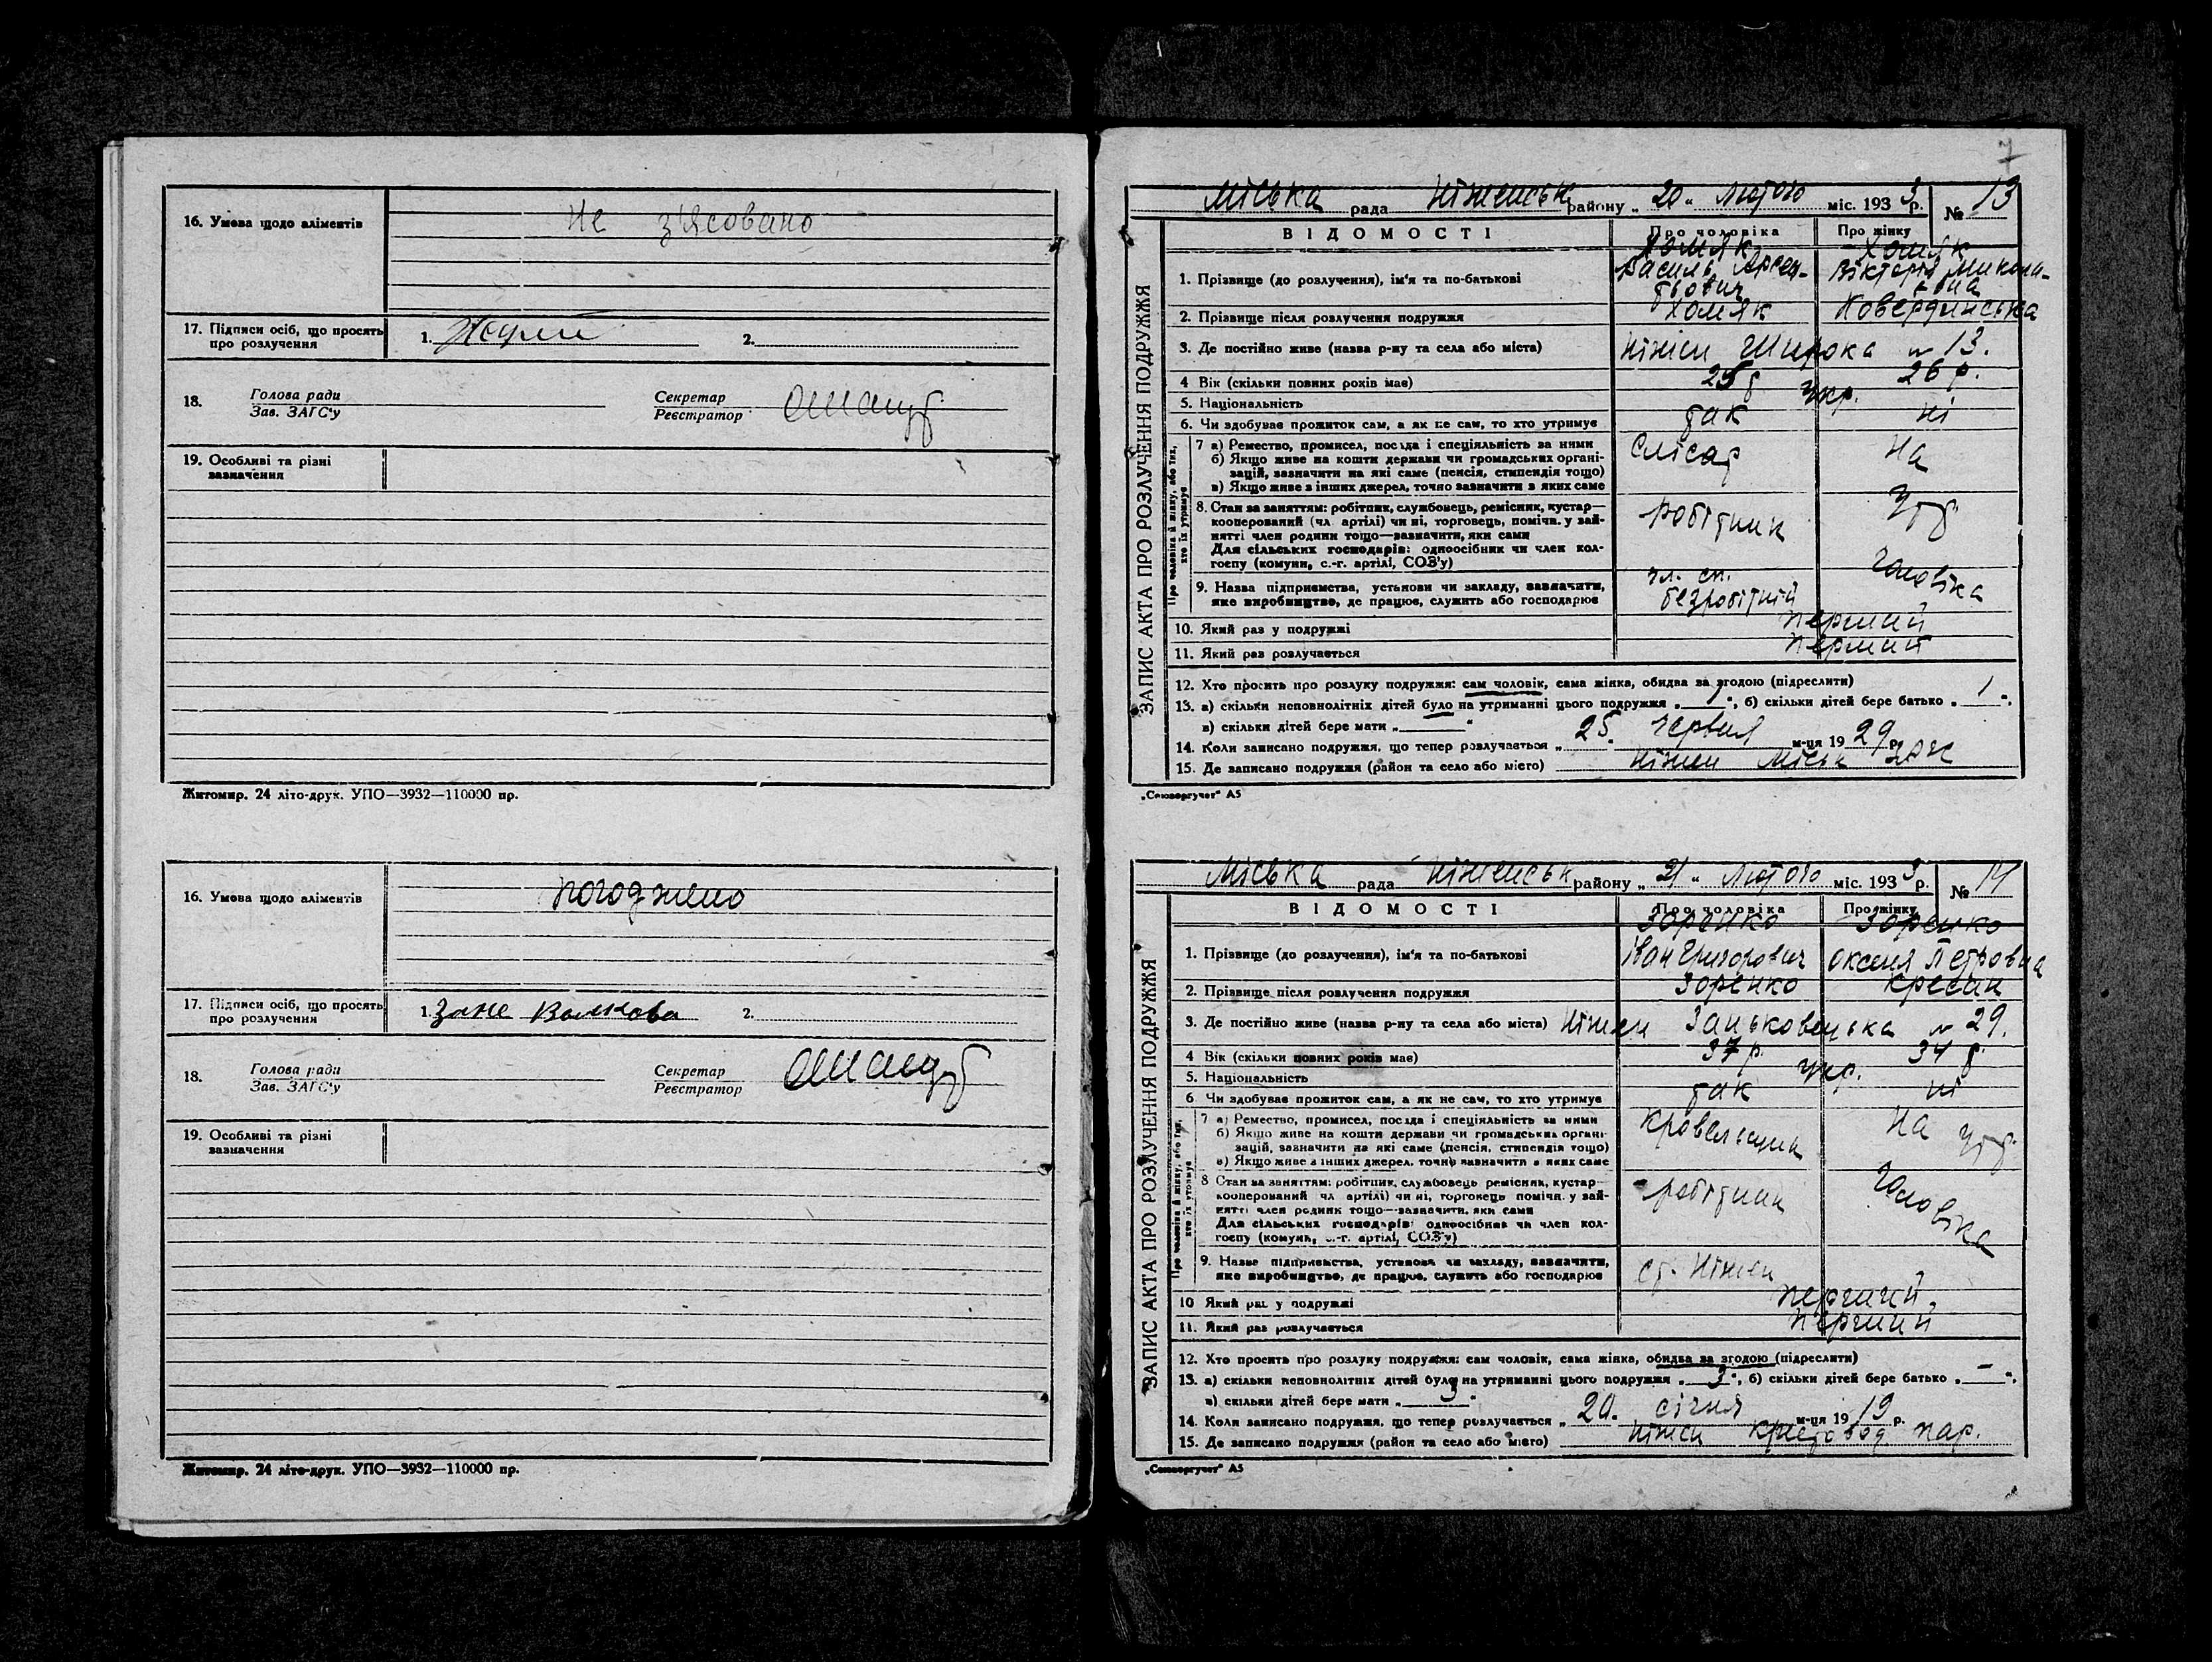 16. Умова щодо аліментів
Не з'ясовано
17. Підписи осіб, що просять
про розлучення
1. 2.
18. Голова ради
Зав. ЗАГС'у
Секретар
Реєстратор
19. Особливі та різні
зазначення
Житомир. 24 літо-друк. УПО—3932—110000 пр.
16. Умова щодо аліментів
погоджено
17. Підписи осіб, що просять
про розлучення
1. 2.
18. Голова ради
Зав. ЗАГС'у
Секретар
Реєстратор
19. Особливі та різні
зазначення
Житомир. 24 літо-друк. УПО—3932—110000 пр.
7
ЗАПИС АКТА ПРО РОЗЛУЧЕННЯ ПОДРУЖЖЯ
Міська рада Ніженськ району „ 20 " Лютого міс. 1933 р. № 13
ВІДОМОСТІ Про чоловіка Про жінку
Хомяк Хомяк
1. Прізвище (до розлучення), ім'я та по-батькові Василь Арсен- Вікторія Микола-
тьович ївна
2. Прізвище після розлучення подружжя Хомяк
3. Де постійно живе (назва р-ну та села або міста) Ніжен Широка № 13.
4 Вік (скільки повних років має) 26 р.
5. Національність Укр.
6. Чи здобуває прожиток сам, а як не сам, то хто утримує так ні
Про чоловіка й жінку, або тих,
хто їх утримує
7 а) Ремество, промисел, посада і спеціяльність за ними
б) Якщо живе на кошти держави чи громадських органі-
зацій, зазначити на які саме (пенсія, стипендія тощо)
в) Якщо живе з інших джерел, точно зазначити з яких саме
Слісар На
8. Стан за заняттям: робітник, службовець, ремісник, кустар—
кооперований (чл. артілі) чи ні, торговець, помічн. у зай-
нятті член родини тощо—зазначити, яки сами
Для сільських господарів: одноосібник чи член кол-
госпу (комуни, с.-г. артілі, СОЗ'у)
робітник утр.
9. Назва підприємства, установи чи закладу, зазначити,
яке виробництво, де працює, служить або господарює
чл. сп.
безробітній чоловіка
10. Який раз у подружжі перший
11. Який раз розлучається перший
12. Хто просить про розлуку подружжя: сам чоловік, сама жінка, обидва за згодою (підреслити)
13. а) скільки неповнолітніх дітей було на утриманні цього подружжя „ 1 ", б) скільки дітей бере батько „ 1 ",
в) скільки дітей бере мати „ "
14. Коли записано подружжя, що тепер розлучається „ 25. червня м-ця 19 29 р.
15. Де записано подружжя (район та село або місто) Ніжен Міськ
„Союзоргучет" А5
ЗАПИС АКТА ПРО РОЗЛУЧЕННЯ ПОДРУЖЖЯ
Міська рада Ніженськ району „ 21 " Лютого міс. 1933 р. № 14
ВІДОМОСТІ Про чоловіка Про жінку
Зоренко Зоренко
1. Прізвище (до розлучення), ім'я та по-батькові Іван Григорович Оксеня Петровна
2. Прізвище після розлучення подружжя Зоренко
3. Де постійно живе (назва р-ну та села або міста) Ніжен Заньковецька № 29.
4 Вік (скільки повних років має) 37 р. 34 р.
5. Національність укр.
6 Чи здобуває прожиток сам, а як не сам, то хто утримує так ні
Про чоловіка й жінку, або тих,
хто їх утримує
7 а) Ремество, промисел, посада і спеціяльність за ними
б) Якщо живе на кошти держави чи громадських органі-
зацій, зазначити на які саме (пенсія, стипендія тощо)
в) Якщо живе з інших джерел, точно зазначити з яких саме
На утр.
8 Стан за заняттям: робітник, службовець ремісник, кустар—
кооперований чл артілі) чи ні, торговець помічн. у зай-
нятті член родини тощо—зазначити, яки сами
Для сільських господарів: одноосібник чи член кол-
госпу (комуни, с.-г. артілі, СОЗ'у)
робітник чоловіка
9. Назва підприємства, установи чи закладу, зазначити,
яке виробництво, де працює, служить або господарює
ст. Ніжен
10 Який раз у подружжі перший
11. Який раз розлучається перший
12. Хто просить про розлуку подружжя: сам чоловік, сама жінка, обидва за згодою (підреслити)
13. а) скільки неповнолітніх дітей було на утриманні цього подружжя „ 3 ", б) скільки дітей бере батько „ — ",
в) скільки дітей бере мати „ 3 "
14. Коли записано подружжя, що тепер розлучається „ 20. січня м-ця 19 19 р.
15. Де записано подружжя (район та село або місто) Ніжен пар.
„Союзоргучет" А5